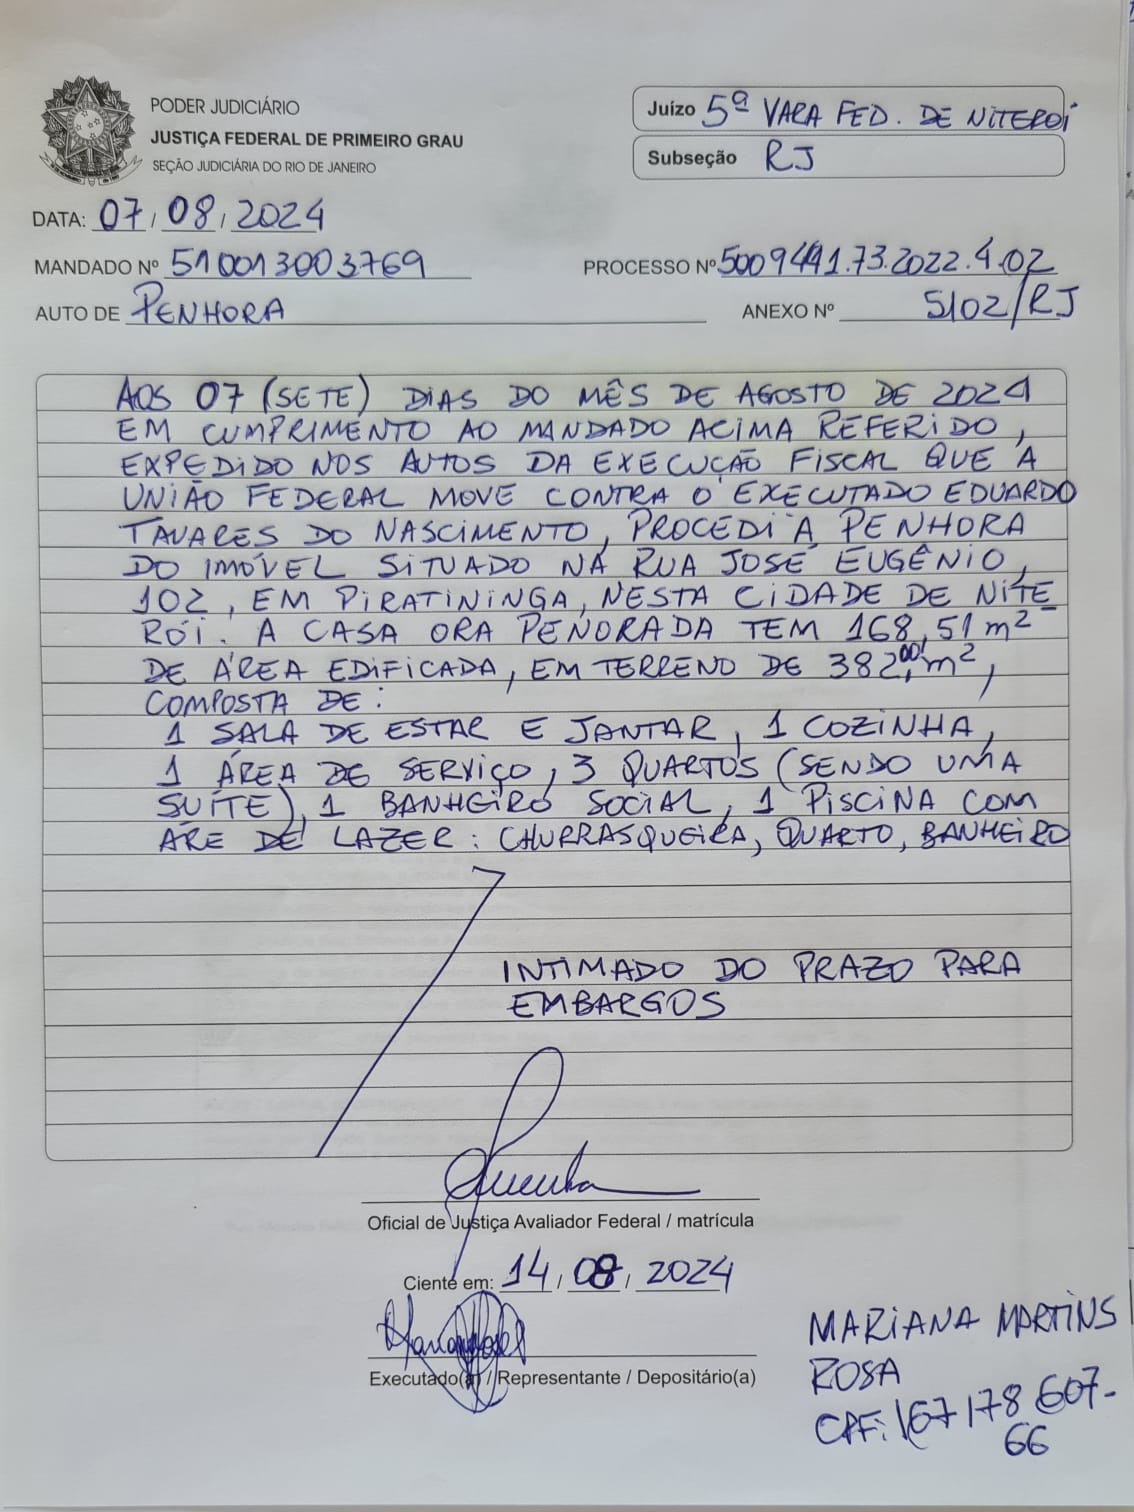 PODER JUDICIÁRIO
JUSTIÇA FEDERAL DE PRIMEIRO GRAU
SEÇÃO JUDICIÁRIA DO RIO DE JANEIRO
Juízo 5ª VARA FED. DE NITEROI
Subseção RJ
DATA: 07 / 08 / 2024
MANDADO Nº 510013003769
PROCESSO Nº 5009441.73.2022.4.02
AUTO DE PENHORA
ANEXO Nº 5102/RJ
AOS 07 (SETE) DIAS DO MÊS DE AGOSTO DE 2024
EM CUMPRIMENTO AO MANDADO ACIMA REFERIDO,
EXPEDIDO NOS AUTOS DA EXECUÇÃO FISCAL QUE A
UNIÃO FEDERAL MOVE CONTRA O EXECUTADO EDUARDO
TAVARES DO NASCIMENTO, PROCEDI À PENHORA
DO IMÓVEL SITUADO NA RUA JOSÉ EUGÊNIO,
102, EM PIRATININGA, NESTA CIDADE DE NITE
RÓI. A CASA ORA PENORADA TEM 168,51 m²
DE ÁREA EDIFICADA, EM TERRENO DE 382,00 m²,
COMPOSTA DE:
1 SALA DE ESTAR E JANTAR, 1 COZINHA,
1 ÁREA DE SERVIÇO, 3 QUARTOS (SENDO UMA
SUÍTE), 1 BANHEIRO SOCIAL, 1 PISCINA COM
ÁRE DE LAZER: CHURRASQUEIRA, QUARTO, BANHEIRO
INTIMADO DO PRAZO PARA
EMBARGOS
Oficial de Justiça Avaliador Federal / matrícula
Ciente em: 14 / 08 / 2024
Executado(a) / Representante / Depositário(a)
MARIANA MARTINS
ROSA
CPF: 167 178 607-
66